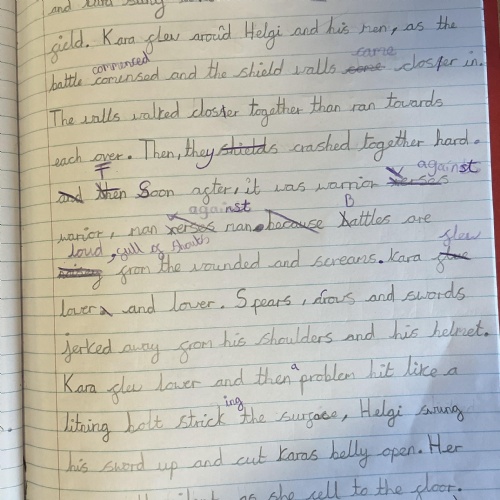 and Kara
field. Kara flew around Helgi and his men, as the
commensed came
battle comensed and the shield walls come closter in.
The walls walked closter together than ran towards
each over. Then, they shields crashed together hard.
F against
and then Soon after, it was warrior verses
against B
warior, man verses man. because battles are
loud, full of shouts flew
from the wounded and screams. Kara flue
lover and lover. Spears, arows and swords
jerked away from his shoulders and his helmet.
a
Kara flew lower and then problem hit like a
ing
litning bolt strick the surface, Helgi swung
his sword up and cut Karas belly open. Her
as she fell to the floor.